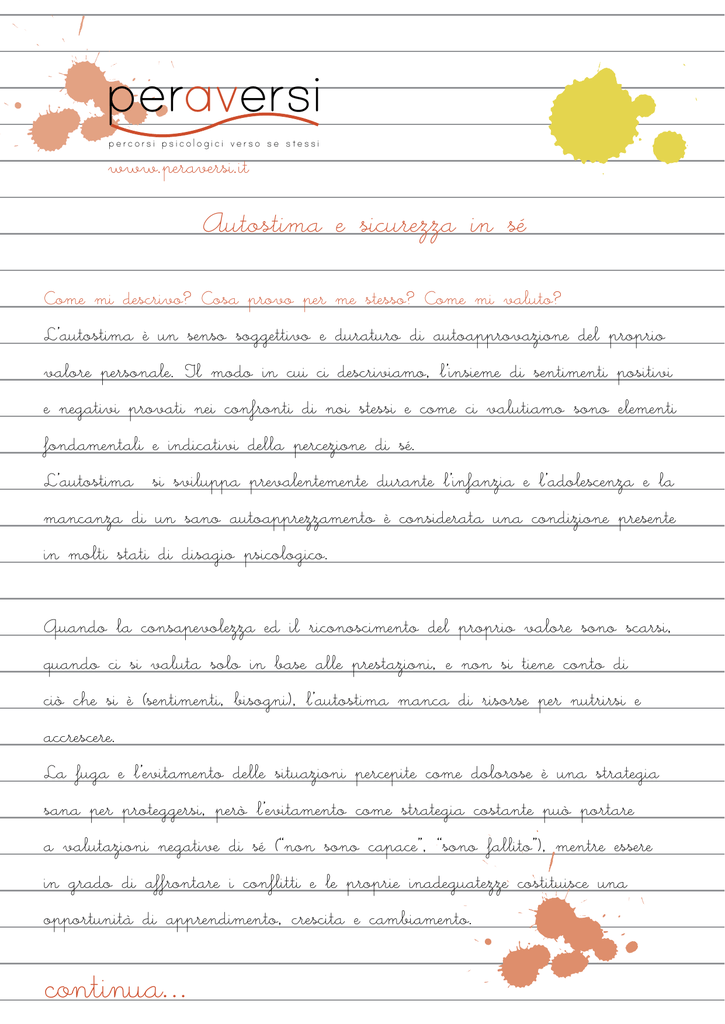 peraversi
percorsi psicologici verso se stessi
www.peraversi.it
Autostima e sicurezza in sé
Come mi descrivo? Cosa provo per me stesso? Come mi valuto?
L'autostima è un senso soggettivo e duraturo di autoapprovazione del proprio
valore personale. Il modo in cui ci descriviamo, l'insieme di sentimenti positivi
e negativi provati nei confronti di noi stessi e come ci valutiamo sono elementi
fondamentali e indicativi della percezione di sé.
L'autostima si sviluppa prevalentemente durante l'infanzia e l'adolescenza e la
mancanza di un sano autoapprezzamento è considerata una condizione presente
in molti stati di disagio psicologico.
Quando la consapevolezza ed il riconoscimento del proprio valore sono scarsi,
quando ci si valuta solo in base alle prestazioni, e non si tiene conto di
ciò che si è (sentimenti, bisogni), l'autostima manca di risorse per nutrirsi e
accrescere.
La fuga e l'evitamento delle situazioni percepite come dolorose è una strategia
sana per proteggersi, però l'evitamento come strategia costante può portare
a valutazioni negative di sé ("non sono capace", "sono fallito"), mentre essere
in grado di affrontare i conflitti e le proprie inadeguatezze costituisce una
opportunità di apprendimento, crescita e cambiamento.
continua...